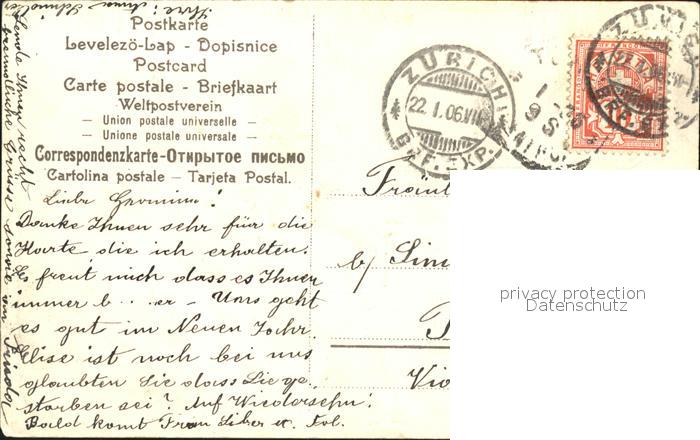 Postkarte
Levelezö-Lap - Dopisnice
Postcard
Carte postale - Briefkaart
Weltpostverein
- Union postale universelle -
- Unione postale universale -
Correspondenzkarte-Открытое письмо
Cartolina postale - Tarjeta Postal.
ZÜRICH
22.I.06.VII
BRF. EXP.
Liebe
Danke Ihnen sehr für die
Karte die ich erhalten.
Es freut mich dass es Ihnen
immer b...er - Uns geht
es gut im Neuen Jahr.
Elise ist noch bei uns
glaubten Sie dass Sie ge-
storben sei? Auf Wiedersehn!
Bald komt Frau
Ihnen recht
freundliche Grüsse sowie von Frieda
Ihre: Anna
Fräul
b/ Lin
privacy protection
Datenschutz